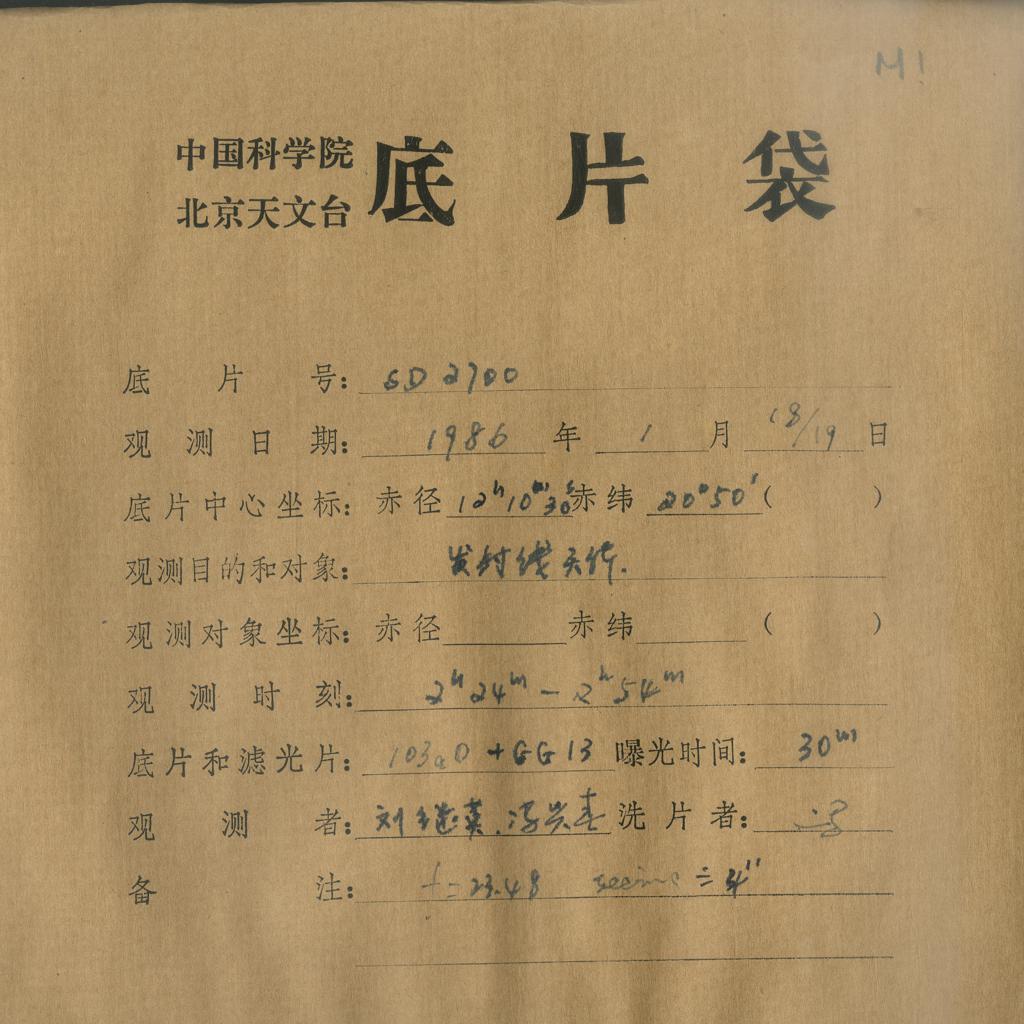 M1
中国科学院
北京天文台
底片袋
底片号: SD 2700
观测日期: 1986 年 1 月 18/19 日
底片中心坐标: 赤径 12h10m30s 赤纬 20°50′ ( )
观测目的和对象: 发射线天体.
观测对象坐标: 赤径 赤纬 ( )
观测时刻: 2h24m - 2h54m
底片和滤光片: 103aO + GG13 曝光时间: 30m
观测者: 刘继英. 冯兴春 洗片者: 冯
备注: f = 23.48 seeing ≐ 4"